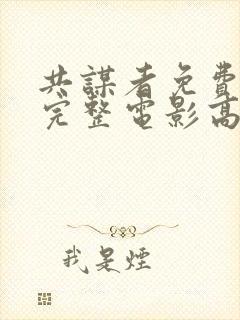 共謀者免費
完整電影高
我是煙